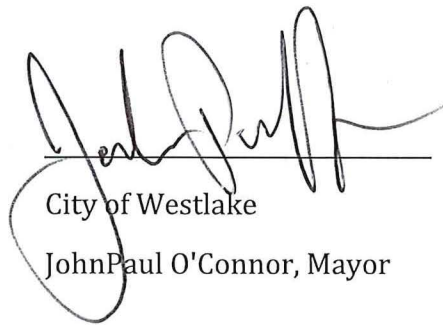 City of Westlake
JohnPaul O'Connor, Mayor